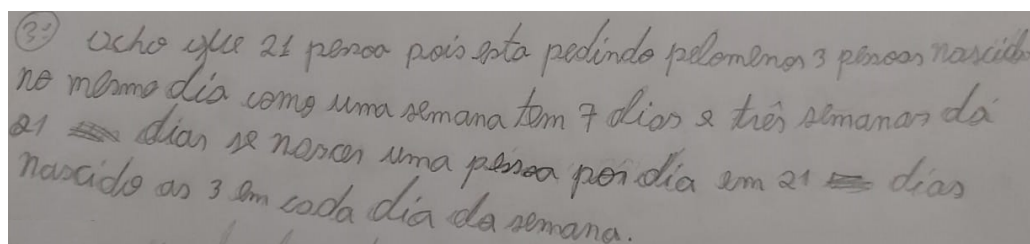 3ª) acho que 21 pessoa pois esta pedindo pelomenos 3 pessoas nascida
no mesmo dia como uma semana tem 7 dias e três semanas dá
21 dias se nascer uma pessoa por dia em 21 dias
nascido as 3 em cada dia da semana.